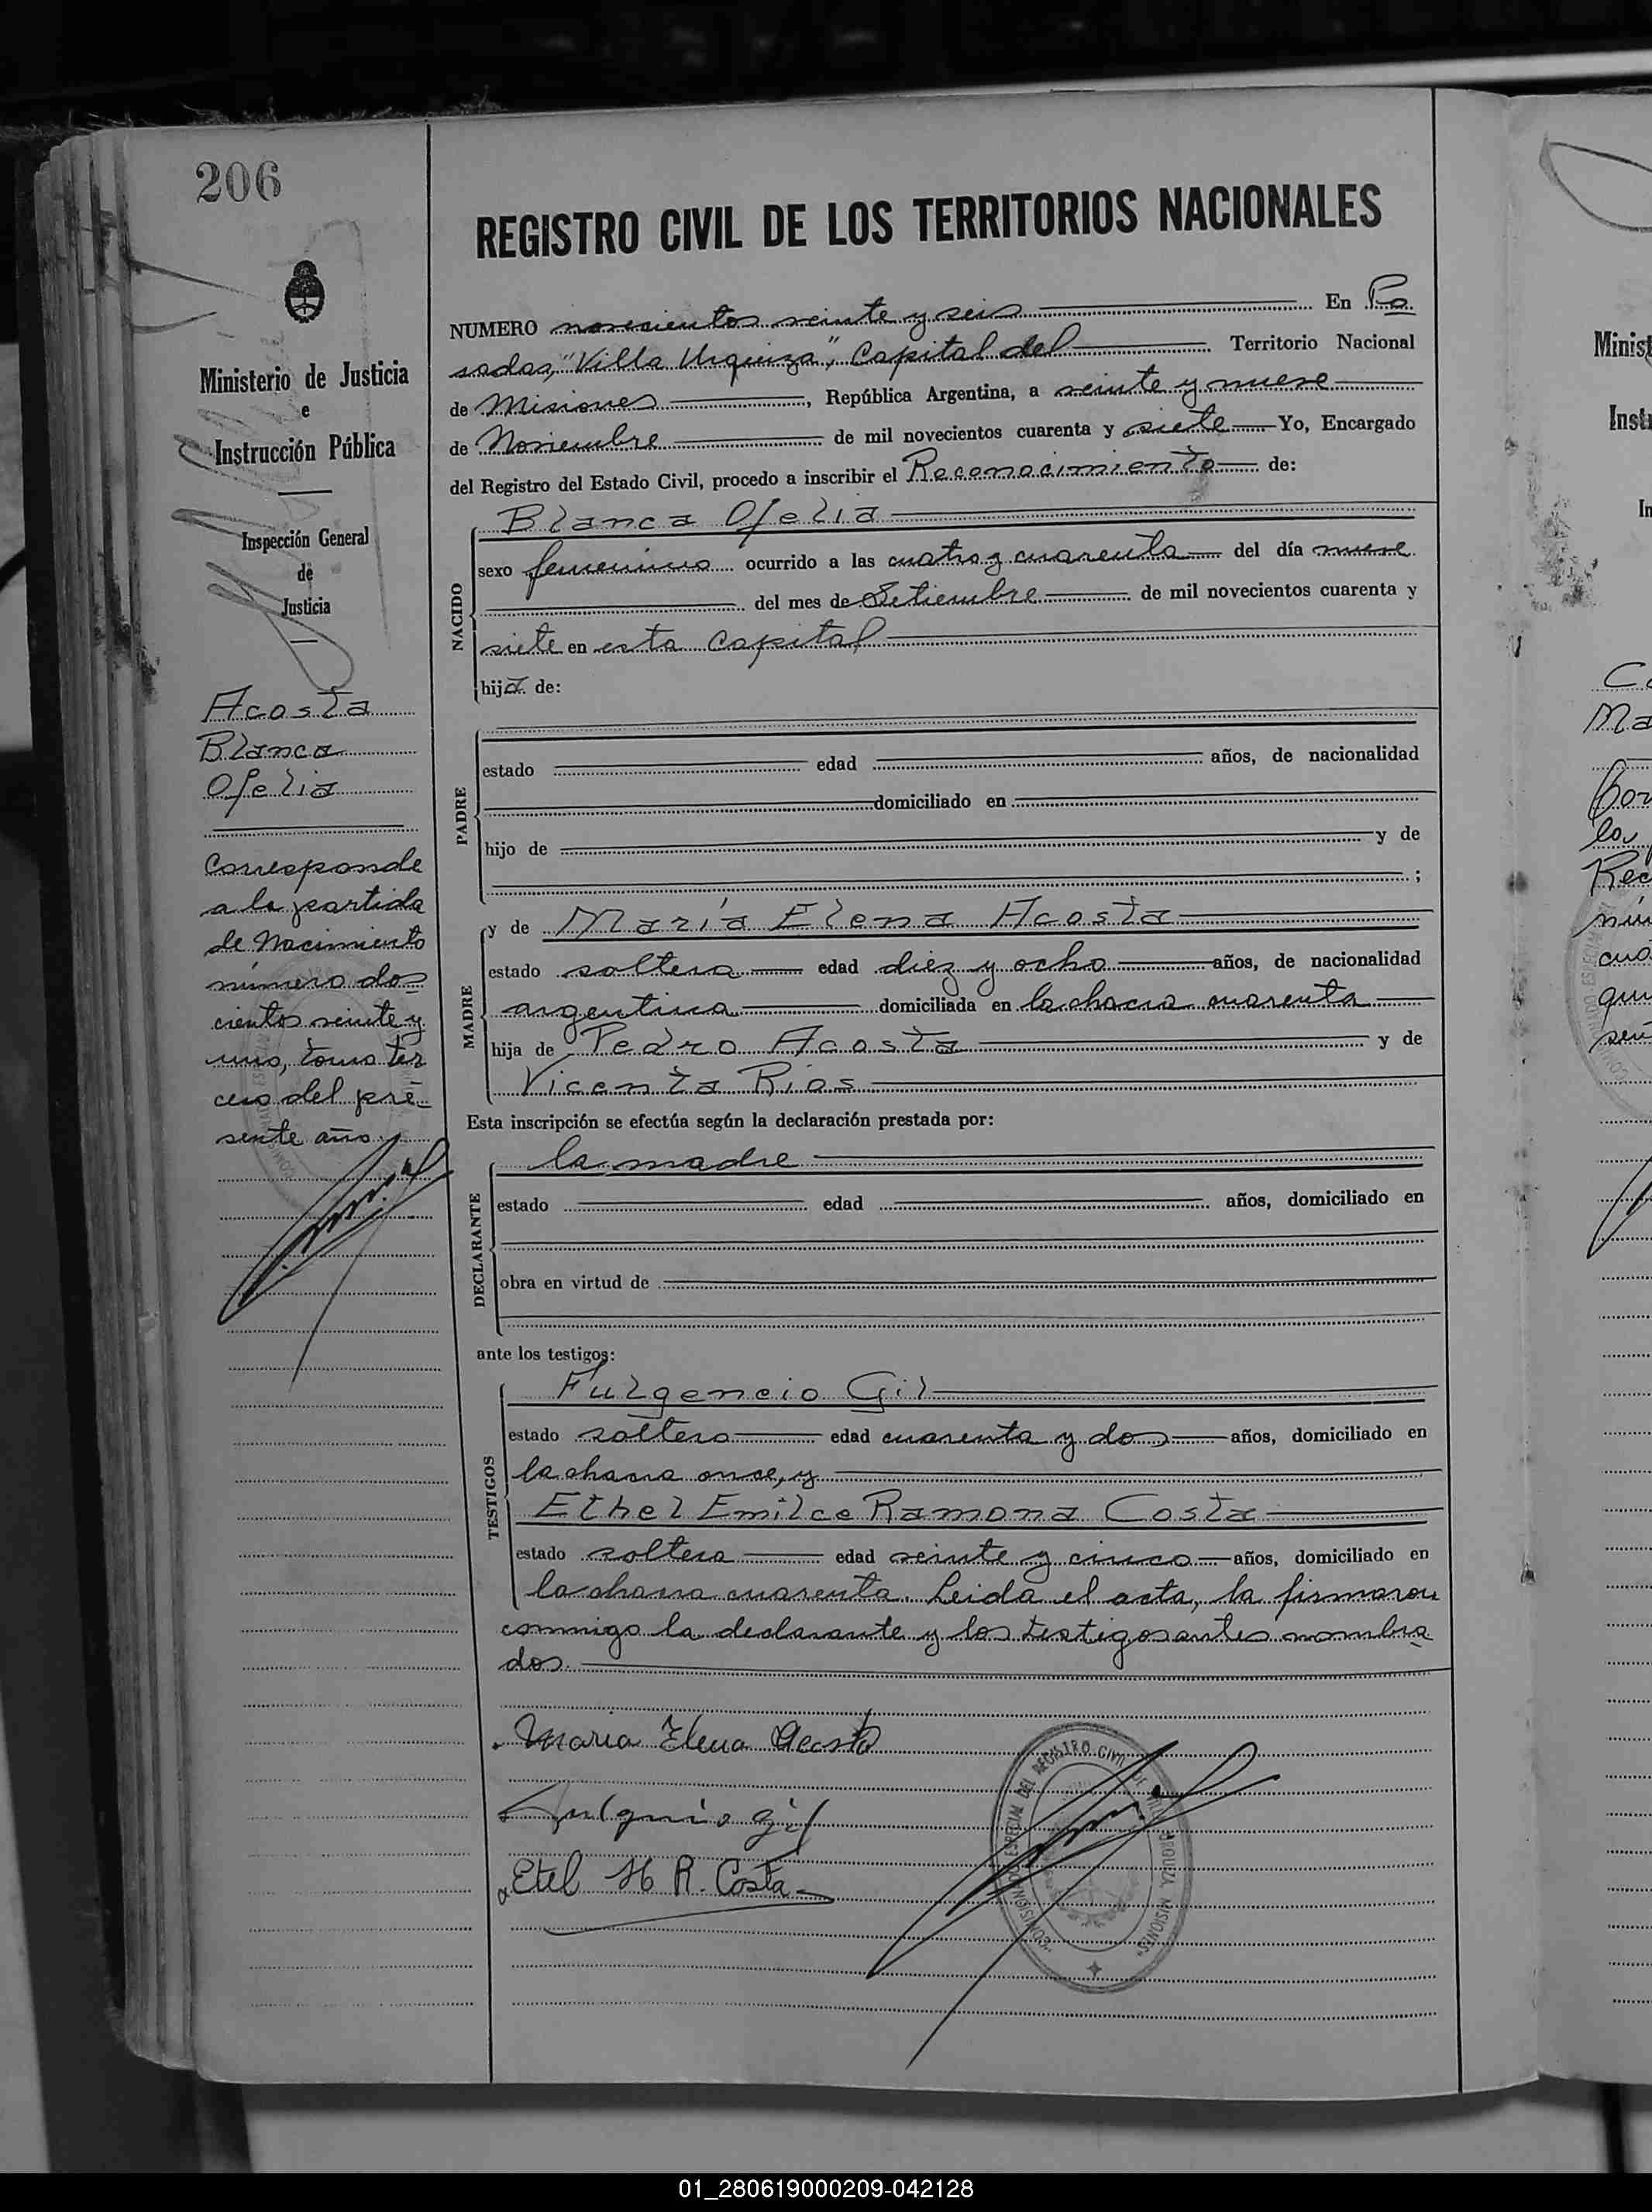 206
REGISTRO CIVIL DE LOS TERRITORIOS NACIONALES
Ministerio de Justicia
e
Instrucción Pública
Inspección General
de
Justicia
Acosta
Blanca
Ofelia
Corresponde
a la partida
de Nacimiento
número dos
cientos veinte y
uno, tomo ter
cero del pre-
sente año.
NUMERO novecientos veinte y seis En Po
sadas, "Villa Urquiza", Capital del Territorio Nacional
de Misiones, República Argentina, a veinte y nueve
de Noviembre de mil novecientos cuarenta y siete Yo, Encargado
del Registro del Estado Civil, procedo a inscribir el Reconocimiento de:
NACIDO
Blanca Ofelia
sexo femenino ocurrido a las cuatro y cuarenta del día nueve
del mes de Setiembre de mil novecientos cuarenta y
siete en esta Capital
hija de:
PADRE
estado edad años, de nacionalidad
domiciliado en
hijo de y de
;
MADRE
y de María Elena Acosta
estado soltera edad diez y ocho años, de nacionalidad
argentina domiciliada en la chacra cuarenta
hija de Pedro Acosta y de
Vicenta Ríos
Esta inscripción se efectúa según la declaración prestada por:
DECLARANTE
la madre
estado edad años, domiciliado en
obra en virtud de
ante los testigos:
TESTIGOS
Fulgencio Gil
estado soltero edad cuarenta y dos años, domiciliado en
la chacra once, y
Ethel Emilce Ramona Costa
estado soltera edad veinte y cinco años, domiciliado en
la chacra cuarenta. Leida el acta, la firmaron
conmigo la declarante y los testigos antes nombra
dos.
Maria Elena Acosta
Fulgencio Gil
Etel H R. Costa
COMISIONADO ESPECIAL DEL REGISTRO CIVIL DE VILLA URQUIZA MISIONES
Minist
Instr
In
Ma
Rec
01_280619000209-042128